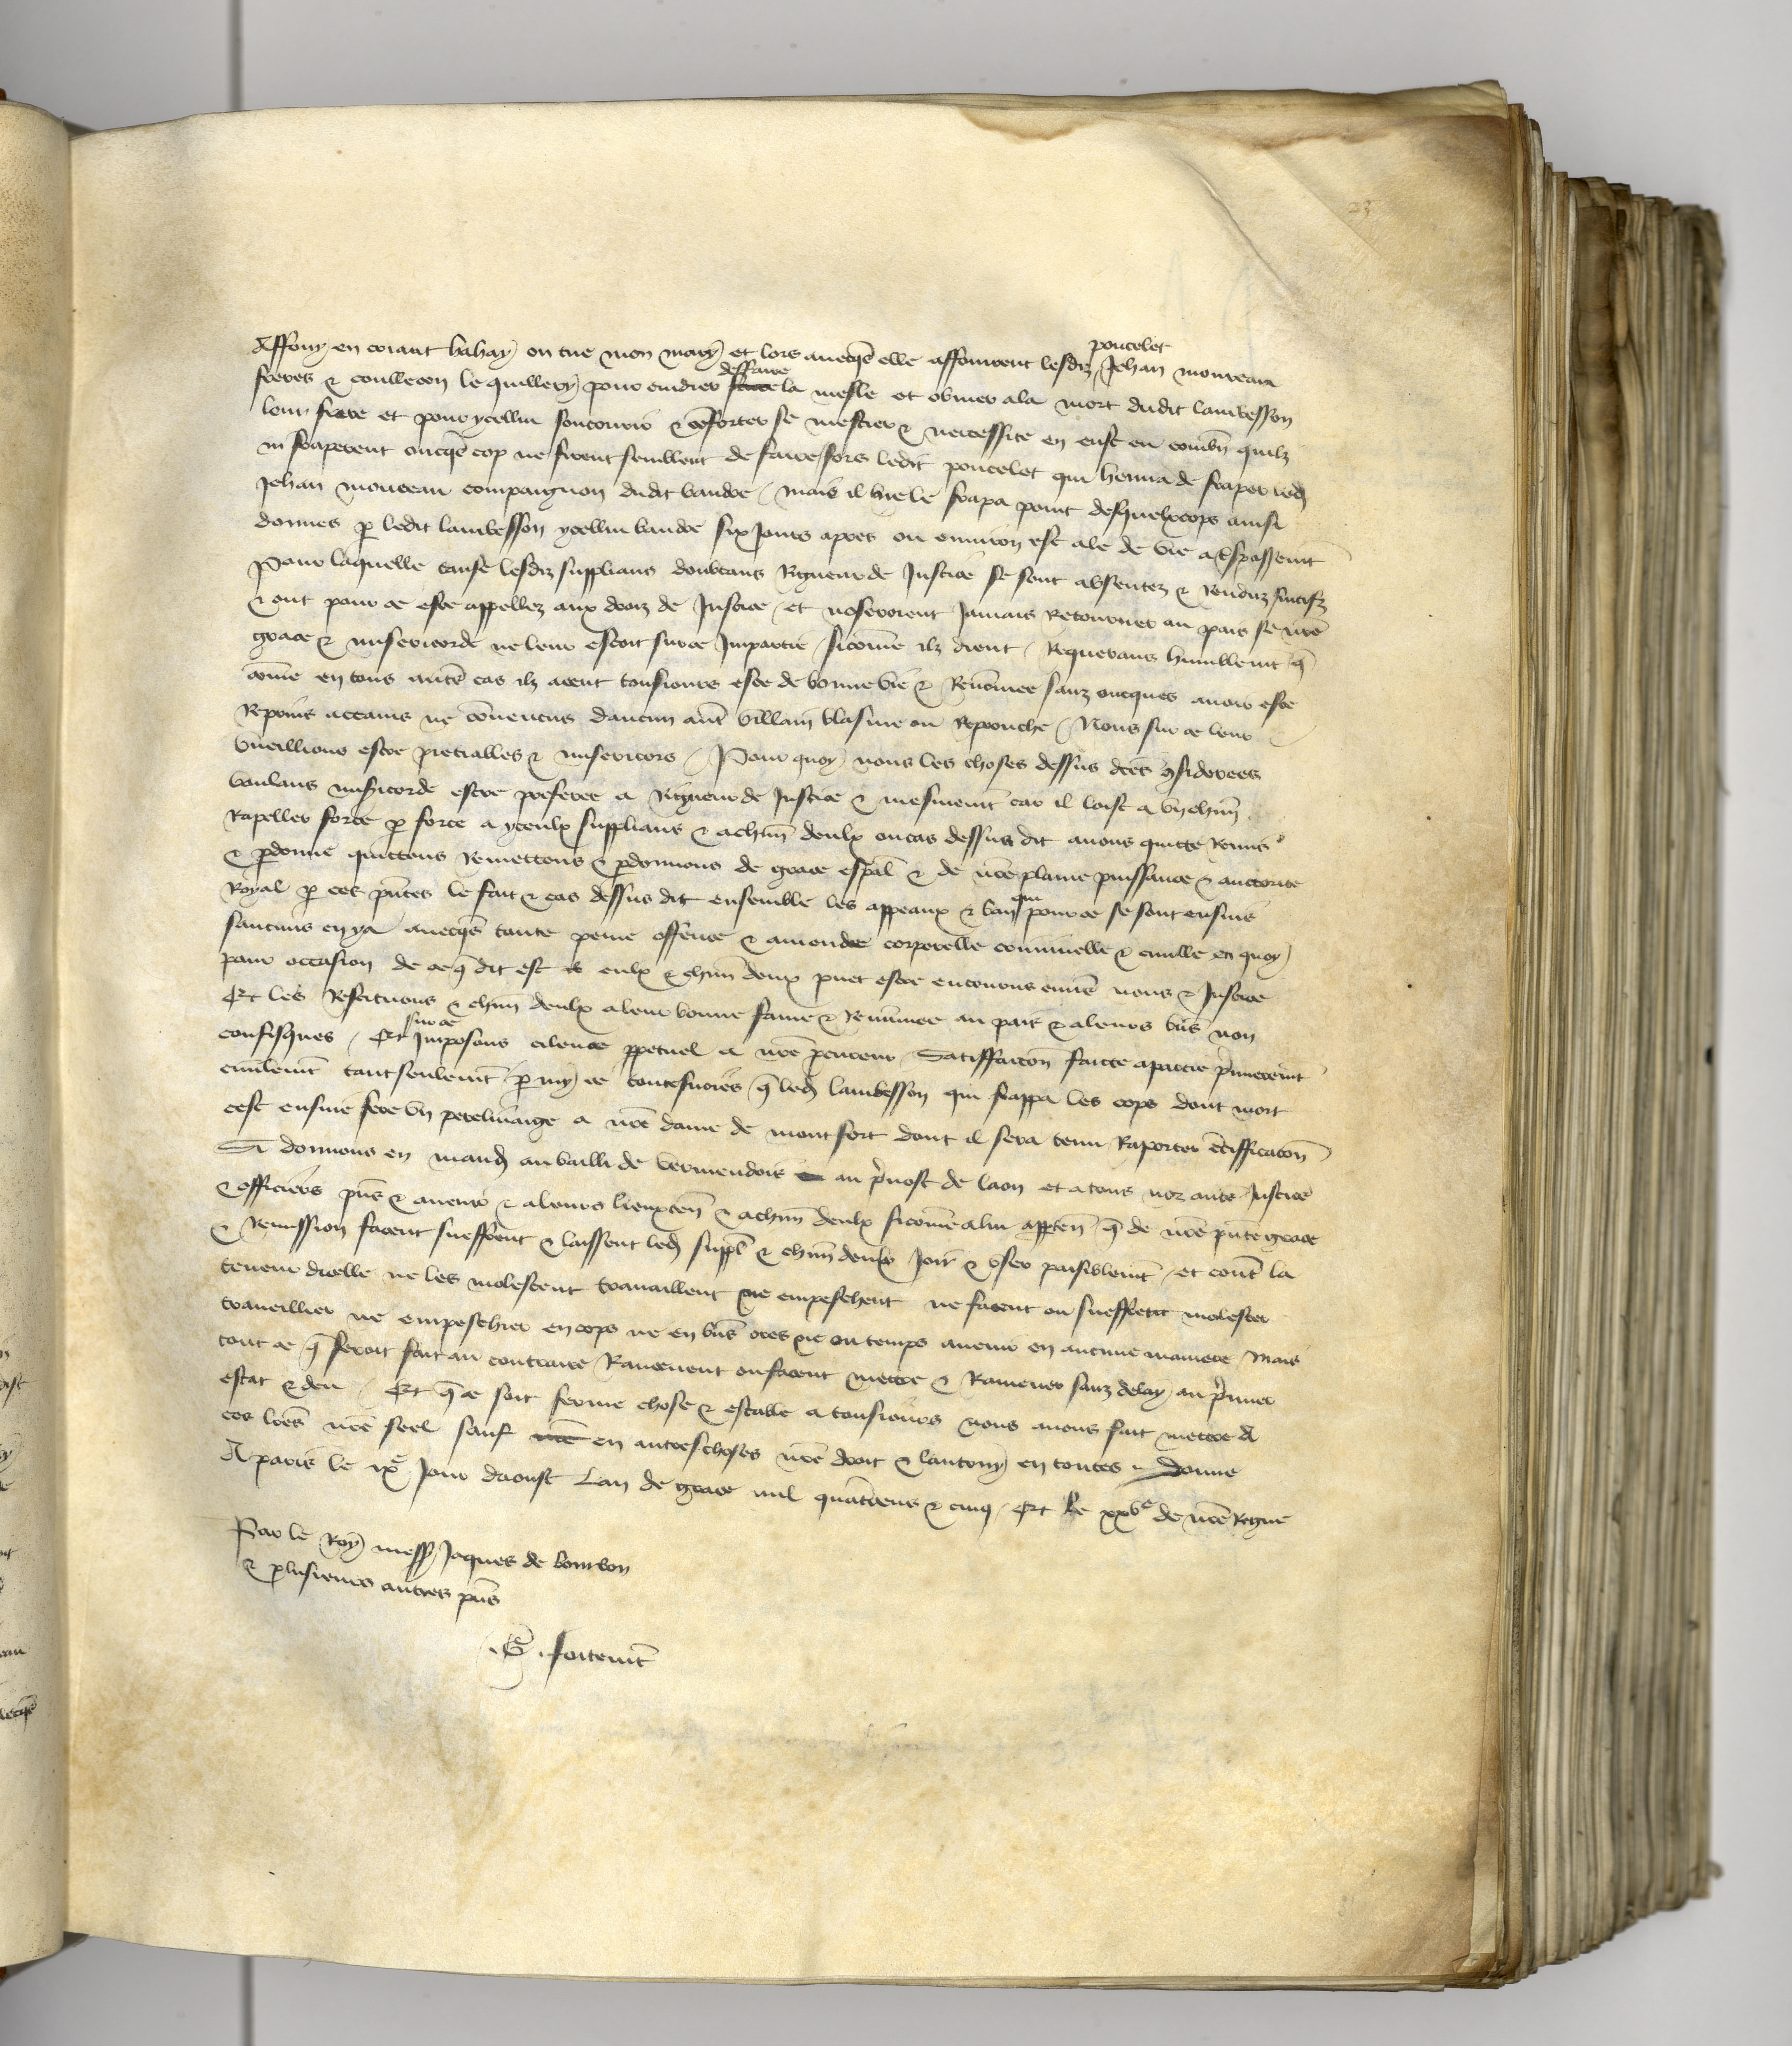 23
Affouy en criant hahay on tue mon mary et lors avecq̄s elle affouirent lesdiz poncelet Jehan moureau
freres & coulleton le quillery pour cuidier deffaire la mesle et obvier a la mort dudit lambesson
leur frere et pour ycellui secourir & cōforter se mestier & neccessite en eust eu combn̄ quilz
ni fraperent oncq̄s cop ne firent semblent de faire fors ledit poncelet qui haussa de fraper led̄
Jehan moureau compaignon dudit baudre / mais il ne le frapa point desquelx cops ainsi
donnes p̱ ledit lambesson ycellui baudre six Jours apres ou environ est ale de vie a t̄spassemt̄
Pour laquelle cause lesdiz supplians doubtans Rigueur de Justice se sont absentez & Renduz fuitifz
& ont pour ce este appellez aux droiz de Justice / et noseroient Jamais Retourner au pais se nr̄e
grace & misericorde ne leur estoit sur ce Impartie / sicom̄e ilz dient / Requerans humblemt̄ q̄
com̄e en tous autr̄s cas ilz aient tousiours este de bonne vie & Renōmee sanz oncques avoir este
Reprins attains ne cōvencus daucun autr̄ villain blasme ou Reprouche / Nous sur ce leur
vueillions estre pietiables & misericors / Pour quoy nous les choses dessus dc̄es ꝯsiderees
voulans mis̄icorde estre preferee a Rigueur de Justice & mesmemt̄ car il loist a vn chūn
Rapeller force p̱ force a yceulx supplians & a chūn deulx ou cas dessus dit avons quicte Remis
& p̱donne quictons Remettons & p̱donnons de grace esp̄al & de nr̄e plaine puissance & auctorite
Royal p̱ ces pn̄tes le fait & cas dessus dit ensemble les appeaux & ban qui pour ce se sont ensuis
saucuns en y a avecq̄s toute peine offense & amende corporelle criminelle & civille en quoy
pour occasion de ce q̄ dit est eulx & chūn deux puet estre encourus envrs̄ nous & Justice
Et les Restituons & chūn deulx a leur bonne fame & Renōmee au pais & a leurs bn̄s non
confisques / Et sur ce Imposons silence pp̱etuel a nr̄e p̱cureur / Satiffaccōn faicte a partie p̄mieremt̄
civilemt̄ tant seulemt̄ p̱ my ce toutesvoies q̄ led̄ lambesson qui frappa les cops dont mort
cest ensuie fera vn pelerinaige a nr̄e dame de montfort dont il sera tenu Raporter c̄tifficacōn
Si donnons en mand̄ au bailli de vermendois au p̄vost de laon et a tous noz autr̄s Justic̄
& officiers pn̄s & avenir & a leurs lieuxten̄ & a chūn deulx sicom̄e a lui app̱ten̄ q̄ de nr̄e pn̄te grace
& Remission facent sueffrent & laissent led̄ suppl̄ & chūn deulx Joir & vser paisiblemt̄ / et contr̄ la
teneur dicelle ne les molestent travaillent ne empeschent ne facent ou sueffrent molester
traveillier ne empeschier en cops ne en bn̄s ores ne ou temps avenir en aucune maniere / Mais
tout ce q̄ seroit fait au contraire Ramenent ou facent mettre & Ramener sanz delay au p̄mier
estat & deu / Et q̄ ce soit ferme chose & estable a tousiours nous avons fait mettre A
ces lr̄es nr̄e seel sauf en autres choses nr̄e droit & lautruy en toutes / Donne
A paris le ixe Jour daoust Lan de grace mil quatrecens & cinq / Et le xxve de nr̄e Regne
Par le Roy mess̄ Jaques de bourbon
& plusieurs autres pn̄s
.G. fortemt̄